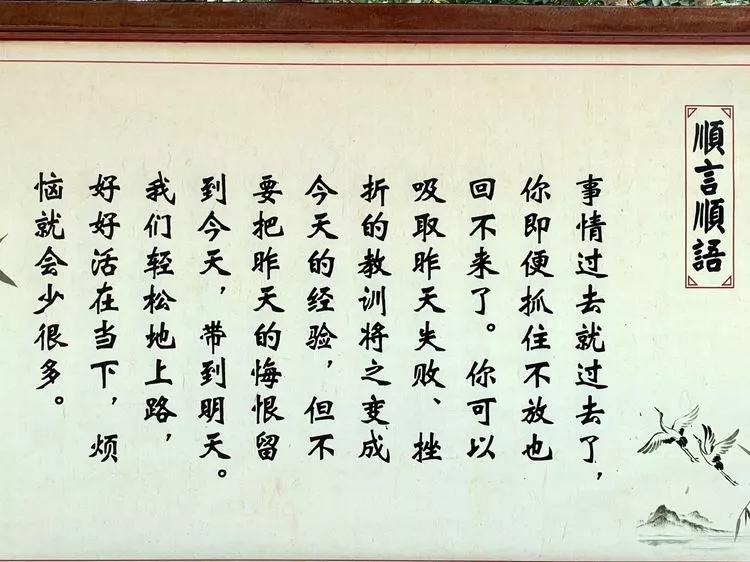 順言順語
事情过去就过去了，
你即便抓住不放也
回不来了。你可以
吸取昨天失败、挫
折的教训将之变成
今天的经验，但不
要把昨天的悔恨留
到今天，带到明天。
我们轻松地上路，
好好活在当下，烦
恼就会少很多。